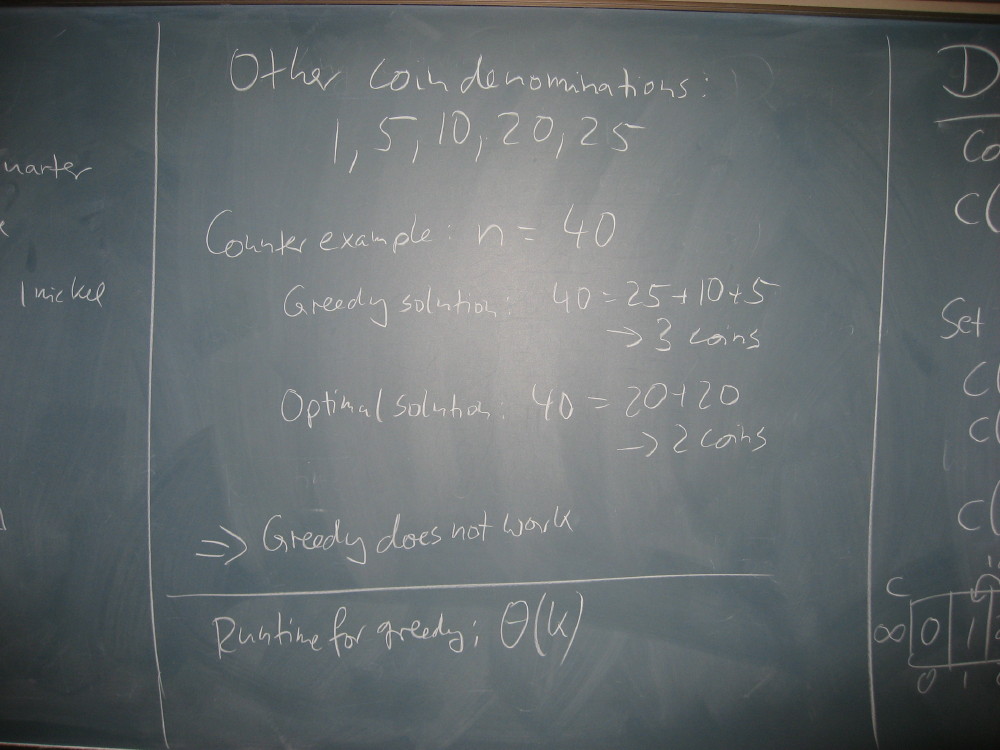 uarter
1 nickel
Other coin denominations:
1, 5, 10, 20, 25
Counter example: n = 40
Greedy solution: 40 = 25+10+5
→ 3 coins
Optimal solution: 40 = 20+20
→ 2 coins
⇒ Greedy does not work
Runtime for greedy: Θ(k)
D
Co
C(
Set
C(
C(
C(
C
∞ 0 1
0 1